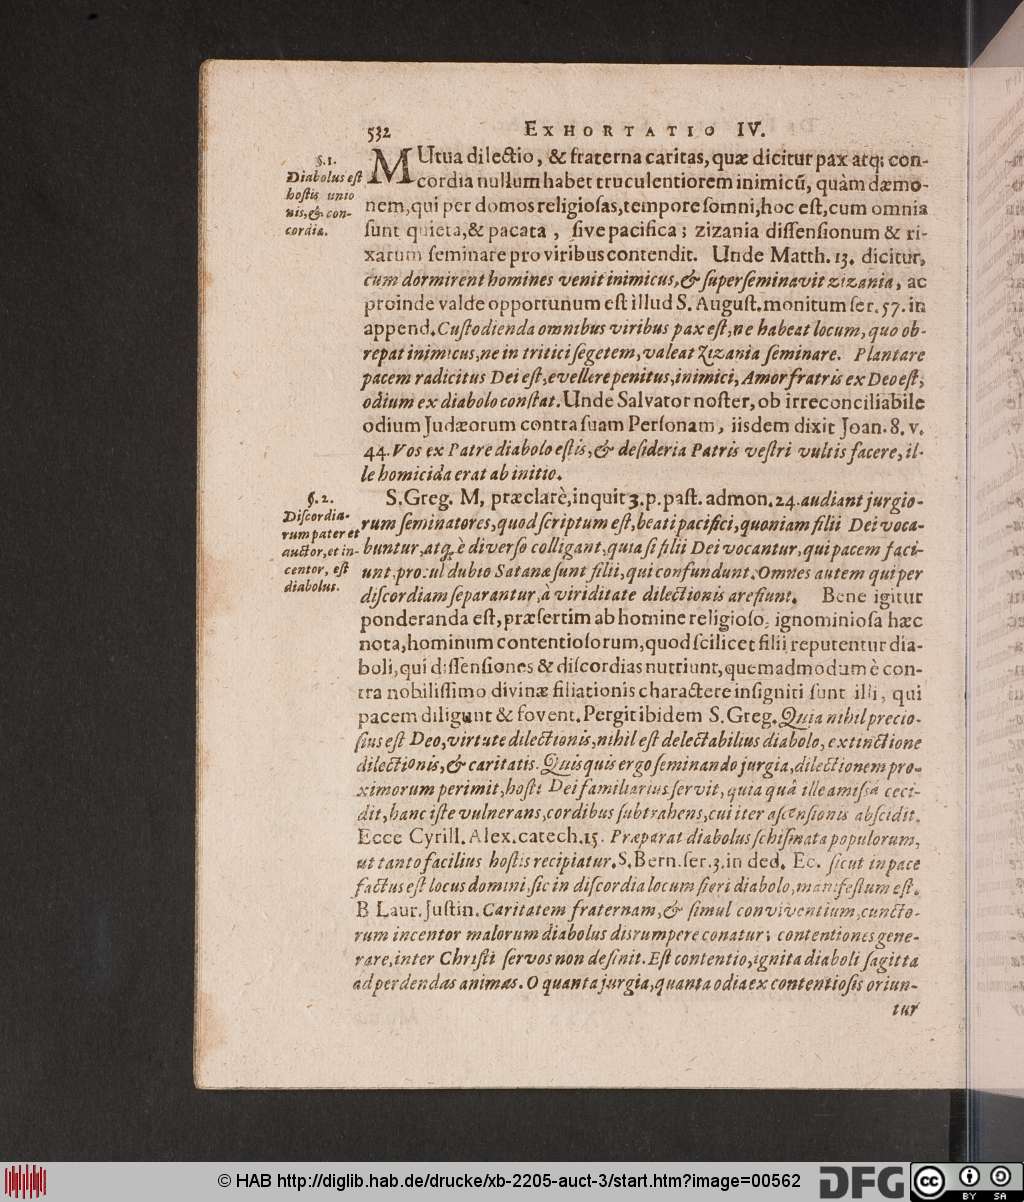 532 EXHORTATIO IV.
§.1.
Diabolus est
hostis unio
nis,& con-
cordiæ.
MUtua dilectio, & fraterna caritas, quæ dicitur pax atq; con-
cordia nullum habet truculentiorem inimicũ, quàm dæmo-
nem, qui per domos religiosas, tempore somni, hoc est, cum omnia
sunt quieta, & pacata, sive pacifica; zizania dissensionum & ri-
xarum seminare pro viribus contendit. Unde Matth. 13. dicitur,
cum dormirent homines venit inimicus, & superseminavit zizania, ac
proinde valde opportunum est illud S. August. monitum ser. 57. in
append. Custodienda omnibus viribus pax est, ne habeat locum, quo ob-
repat inimicus, ne in tritici segetem, valeat Zizania seminare. Plantare
pacem radicitus Dei est, evellere penitus, inimici, Amor fratris ex Deo est,
odium ex diabolo constat. Unde Salvator noster, ob irreconciliabile
odium Judæorum contra suam Personam, iisdem dixit Joan. 8. v.
44. Vos ex Patre diabolo estis, & desideria Patris vestri vultis facere, il-
le homicida erat ab initio.
§.2.
Discordia-
rum pater et
auctor, et in-
centor, est
diabolus.
S. Greg. M, præclarè, inquit 3. p. past. admon. 24. audiant jurgio-
rum seminatores, quod scriptum est, beati pacifici, quoniam filii Dei voca-
buntur, atq; è diverso colligant, quia si filii Dei vocantur, qui pacem faci-
unt, procul dubio Satanæ sunt filii, qui confundunt. Omnes autem qui per
discordiam separantur, à viriditate dilectionis arefiunt. Bene igitur
ponderanda est, præsertim ab homine religioso, ignominiosa hæc
nota, hominum contentiosorum, quod scilicet filii reputentur dia-
boli, qui dissensiones & discordias nutriunt, quemadmodum è con-
tra nobilissimo divinæ filiationis charactere insigniti sunt illi, qui
pacem diligunt & fovent. Pergit ibidem S. Greg. Quia nihil precio-
sius est Deo, virtute dilectionis, nihil est delectabilius diabolo, extinctione
dilectionis, & caritatis. Quisquis ergo seminando jurgia, dilectionem pro-
ximorum perimit, hosti Dei familiarius servit, quia quâ ille amissâ ceci-
dit, hanc iste vulnerans, cordibus subtrahens, cui iter ascensionis abscidit.
Ecce Cyrill. Alex. catech. 15. Præparat diabolus schismata populorum,
ut tanto facilius hostis recipiatur. S. Bern. ser. 3. in ded. Ec. sicut in pace
factus est locus domini, sic in discordia locum fieri diabolo, manifestum est.
B Laur. Justin. Caritatem fraternam, & simul conviventium, cuncto-
rum incentor malorum diabolus disrumpere conatur; contentiones gene-
rare, inter Christi servos non desinit. Est contentio, ignita diaboli sagitta
ad perdendas animas. O quanta jurgia, quanta odia ex contentiosis oriun-
tur
© HAB http://diglib.hab.de/drucke/xb-2205-auct-3/start.htm?image=00562
DFG
cc
BY SA